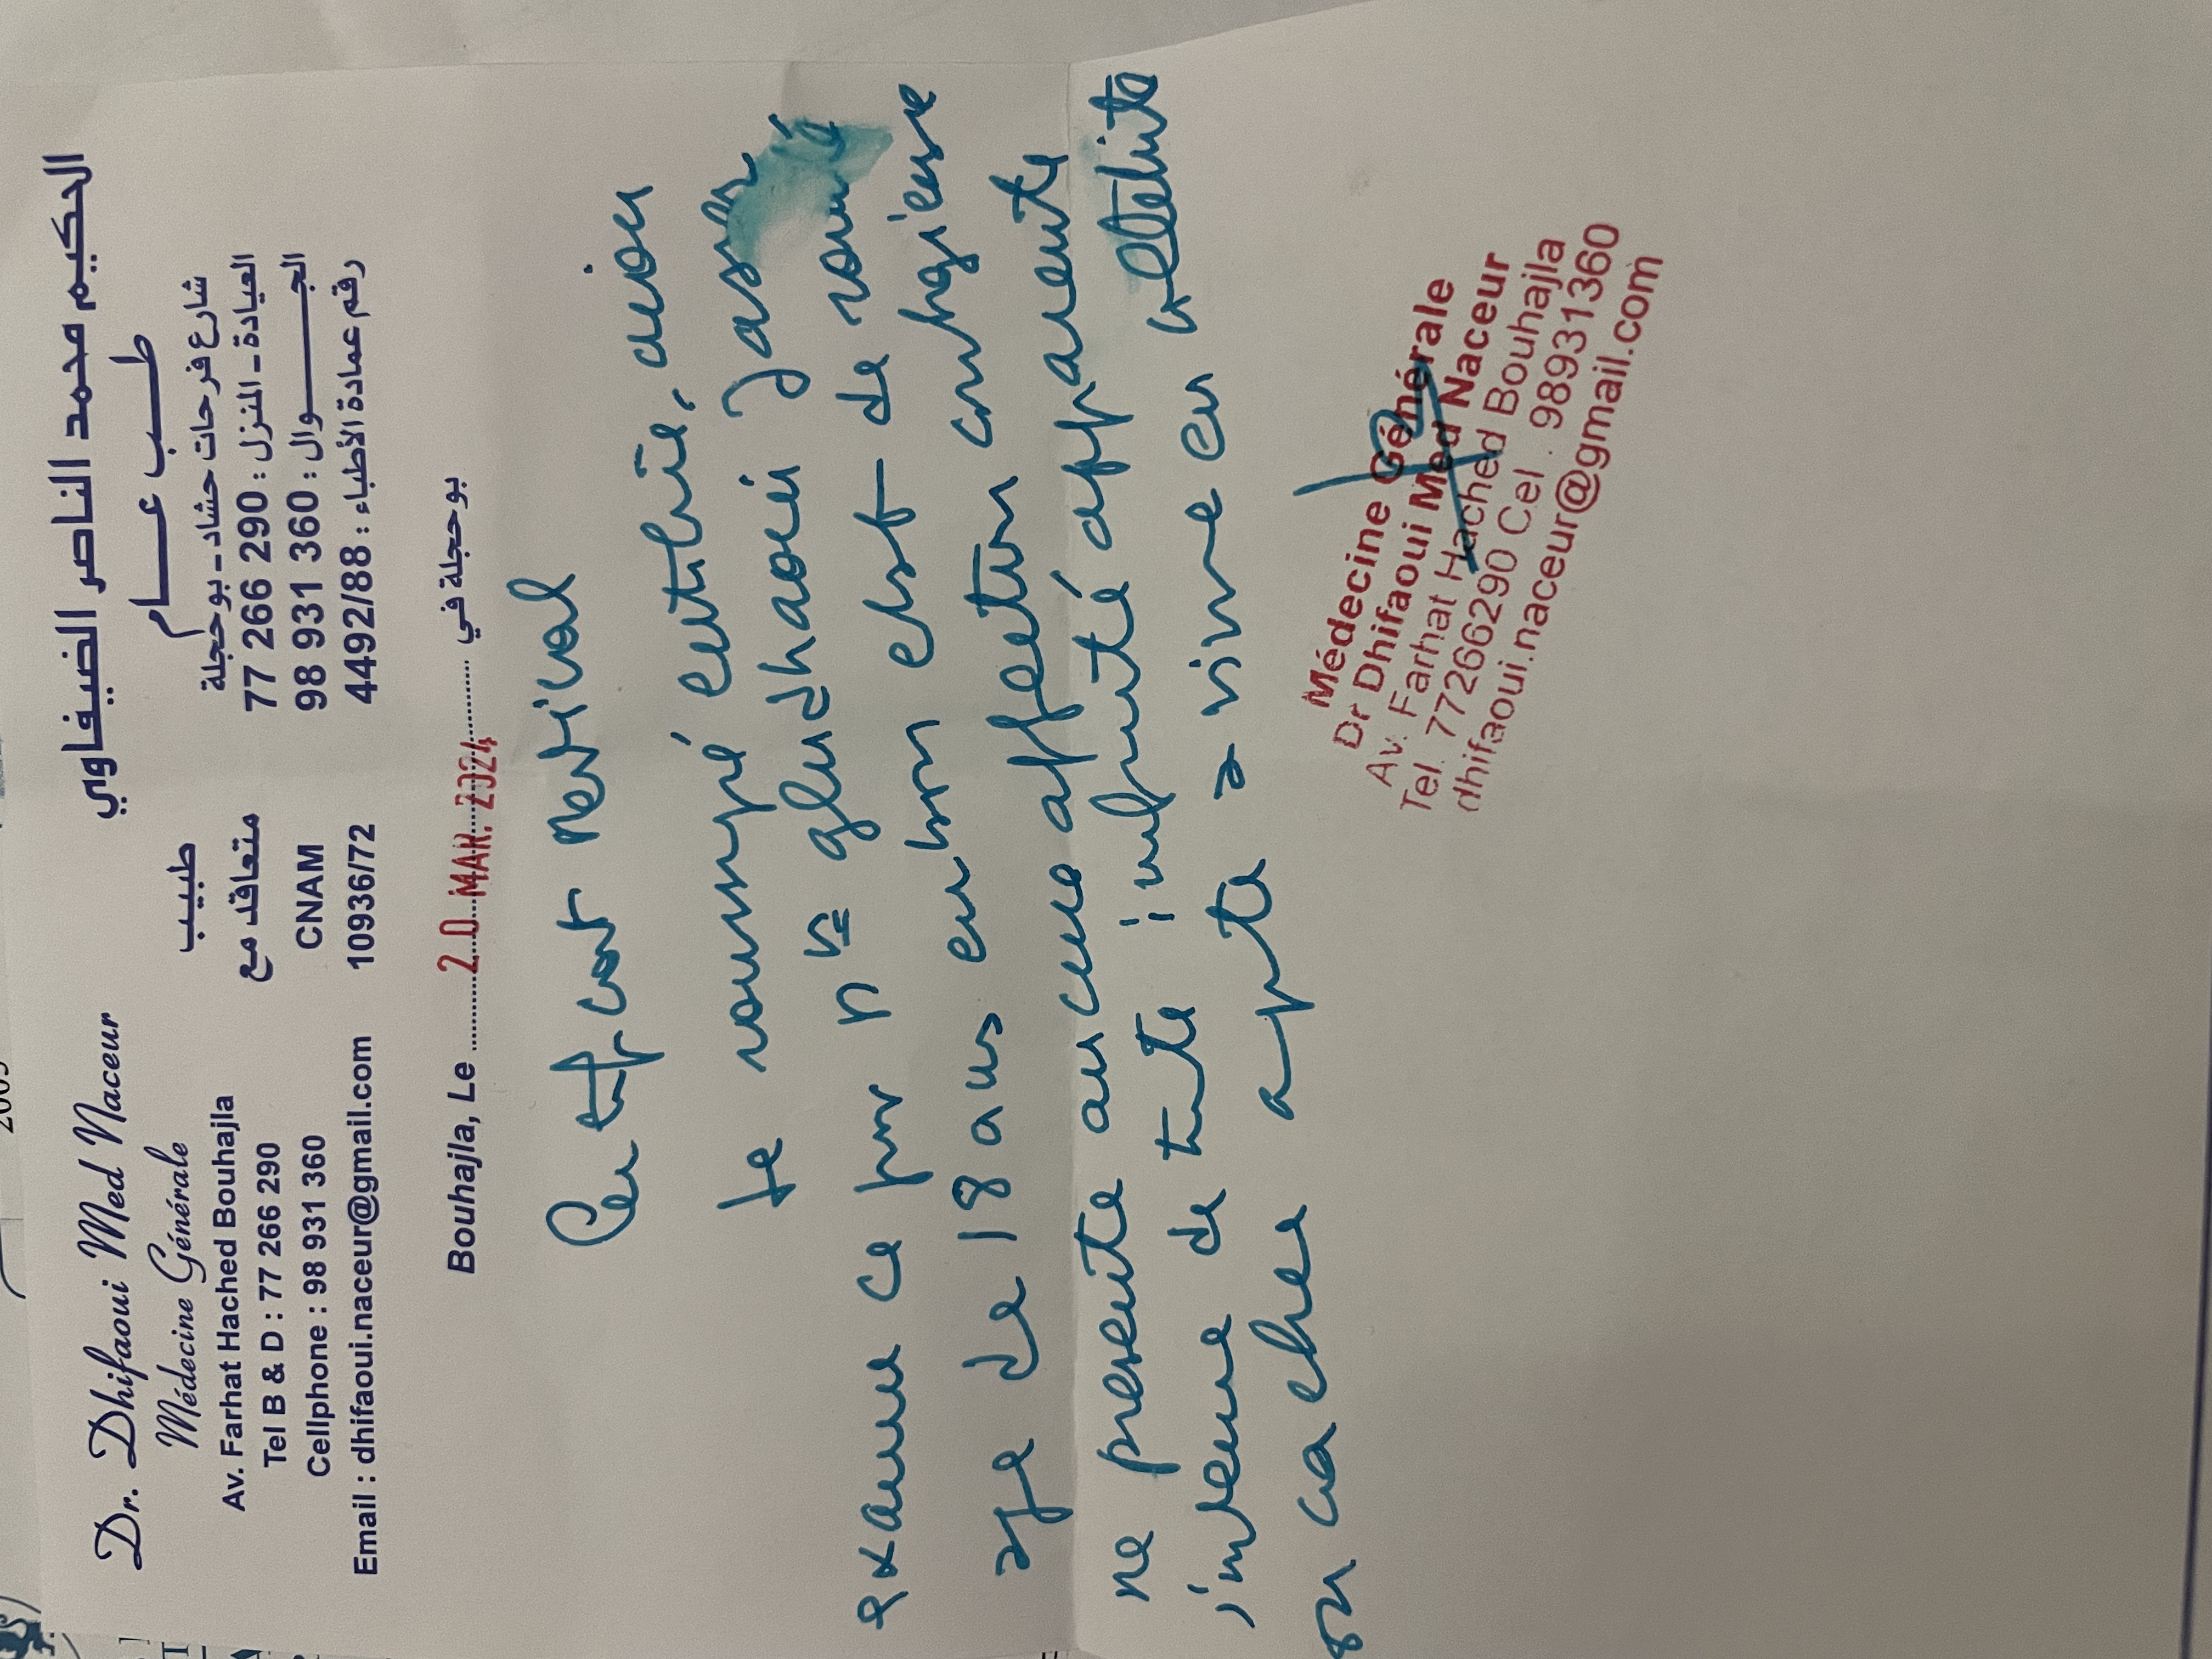 Dr. Dhifaoui Med Naceur
Médecine Générale
Av. Farhat Hached Bouhajla
Tel B & D : 77 266 290
Cellphone : 98 931 360
Email : dhifaoui.naceur@gmail.com
طبيب
متعاقد مع
CNAM
10936/72
الحكيم محمد الناصر الضيفاوي
طب عام
شارع فرحات حشاد - بوحجلة
العيادة - المنزل : 77 266 290
الجوال : 98 931 360
رقم عمادة الأطباء : 4492/88
Bouhajla, Le 20 MAR. 2024 بوحجلة في
Certificat médical
Je soussigné certifie, avoir
examiné ce jour Mr
age de 18 ans environ est
ne présente aucune affection contagieuse
indemne de toute infirmité apparente
ou cachée apte à vivre en
Médecine Générale
Dr Dhifaoui Med Naceur
Av. Farhat Hached Bouhajla
Tel. 77266290 Cel. 98931360
dhifaoui.naceur@gmail.com